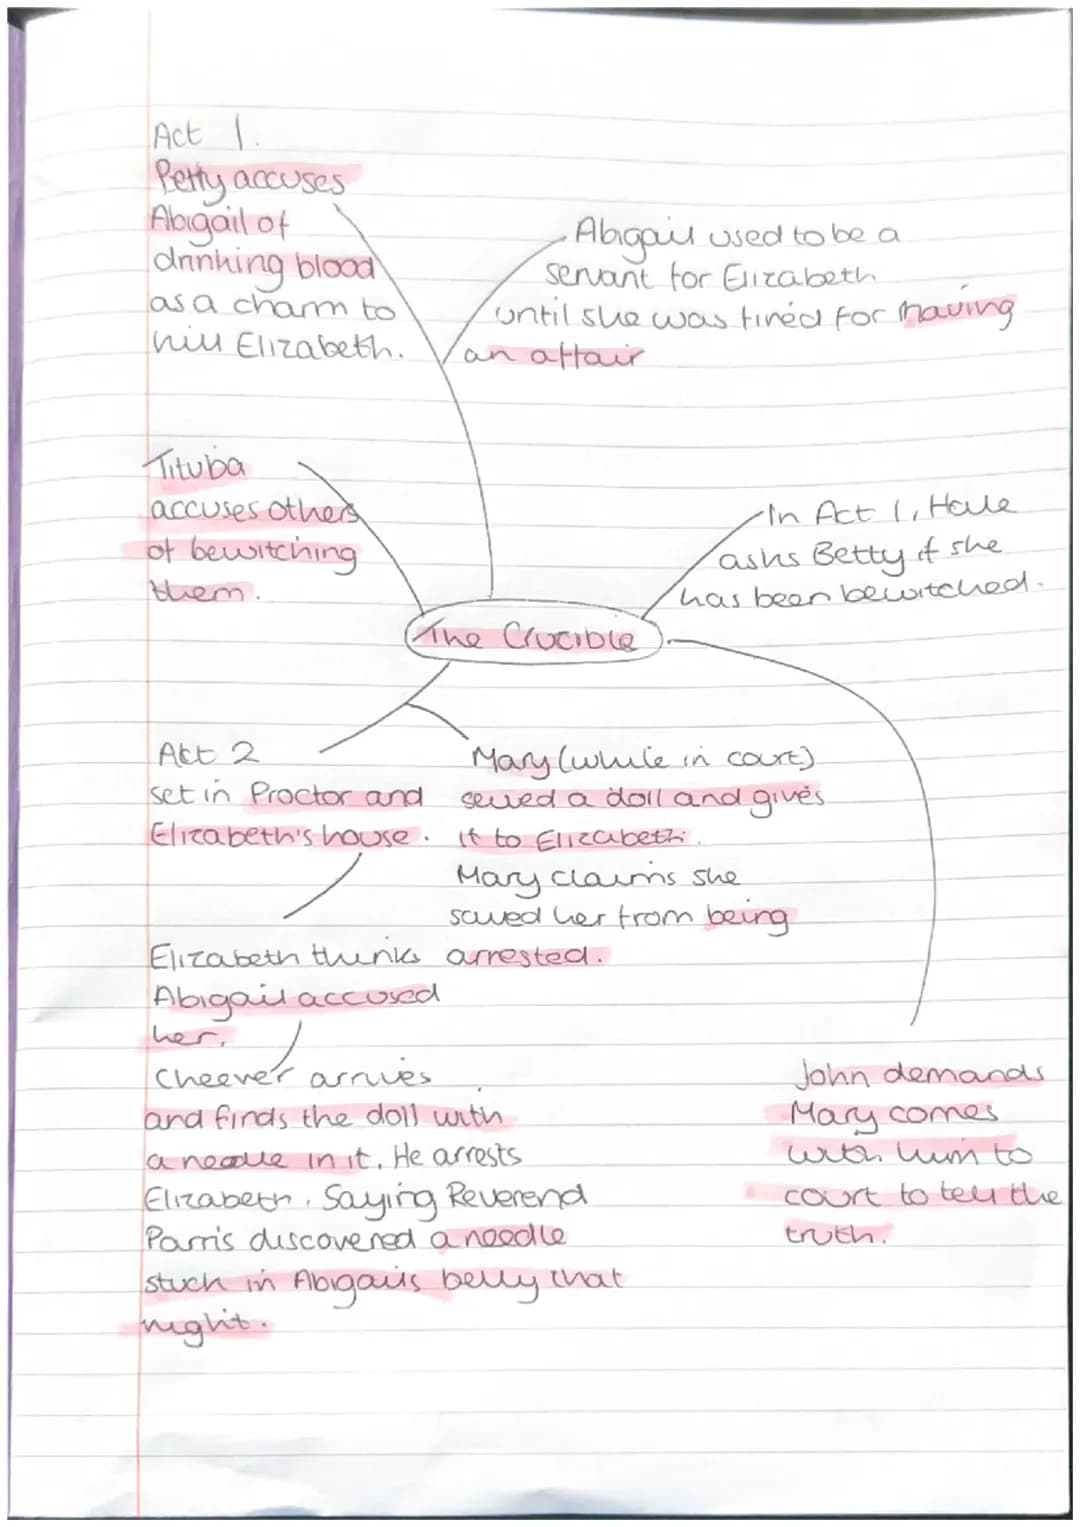 Act 1.
Petty accuses
Abigail of
drinking blood
as a charm to
kill Elizabeth.
Abigail used to be a
servant for Elizabeth
until she was fired for having
an affair
Tituba
accuses others
of bewitching
them.
In Act 1, Hale
asks Betty if she
has been bewitched.
The Crucible
Act 2
set in Proctor and
Elizabeth's house.
Mary (while in court)
sewed a doll and gives
it to Elizabeth.
Mary claims she
saved her from being
arrested.
Elizabeth thinks
Abigail accused
her.
Cheever arrives
and finds the doll with
a needle in it. He arrests
Elizabeth. Saying Reverend
Parris discovered a needle
stuck in Abigails belly that
night.
John demands
Mary comes
with him to
court to tell the
truth.